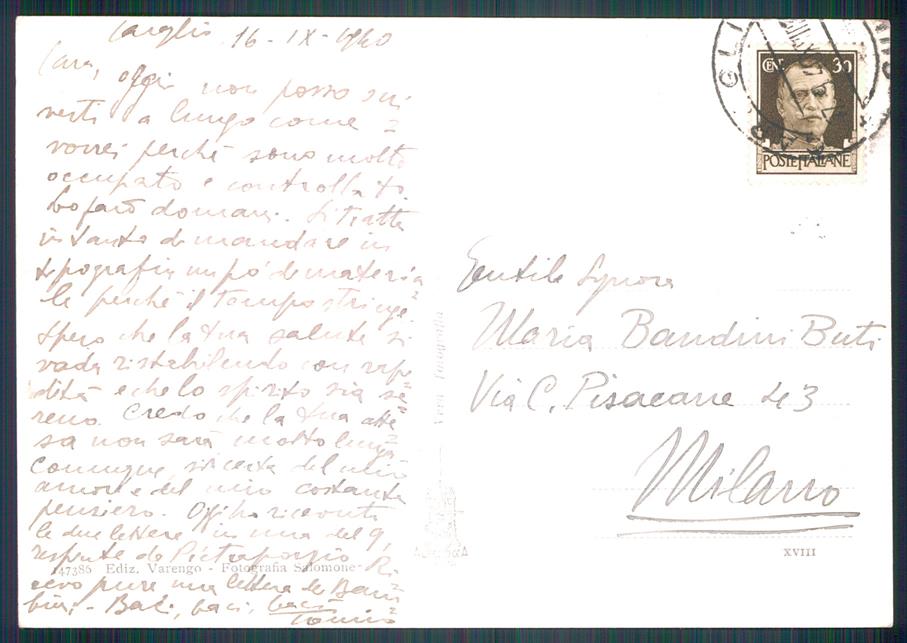 16-IX-1940
Cara, oggi non posso scri
verti a lungo come =
vorrei perché sono molto
occupato e
lo farò domani. Si tratta
intanto di mandare in
tipografia un po' di materia
le perché il tempo stringe.
Spero che la tua salute si
vada ristabilendo con rapi
dità e che lo spirito sia se=
reno. Credo che la tua atte=
sa non sarà molto lunga
comunque, sii certa del mio
amore e del mio costante
pensiero. Oggi ho ricevuto
le due lettere in una del 9,
respinte da Pietraporzio. Ri=
cevo pure una lettera di Bam=
bina. - Baci, baci, baci
Tonino
CENT 30
POSTE ITALIANE
Gentile Signora
Maria Bandini Buti
Via C. Pisacane 43
Milano
XVIII
Vera Fotografia
147386 Ediz. Varengo - Fotografia Salomone